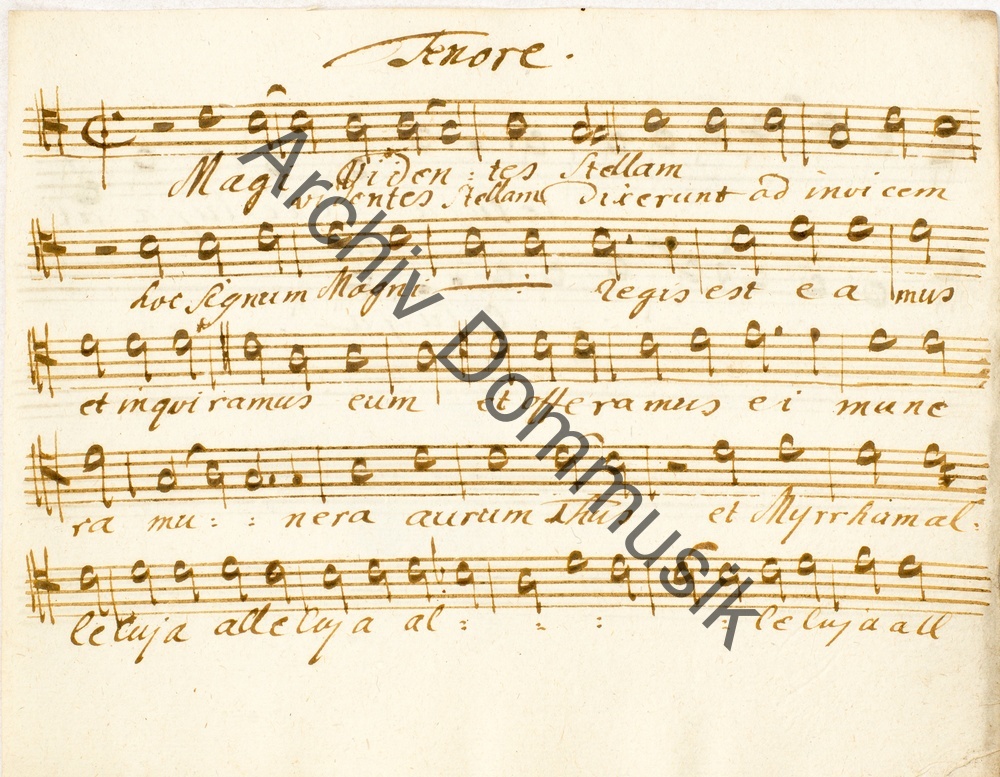 Tenore.
Magi Viden : tes Stellam
videntes Stellam Dixerunt ad invicem
hoc signum Magni : regis est e a mus
et inqviramus eum et offeramus ei mune
ra mu : : nera aurum thus et Myrrham al :
leluja alleluja al : : : : leluja all
Archiv Dommusik